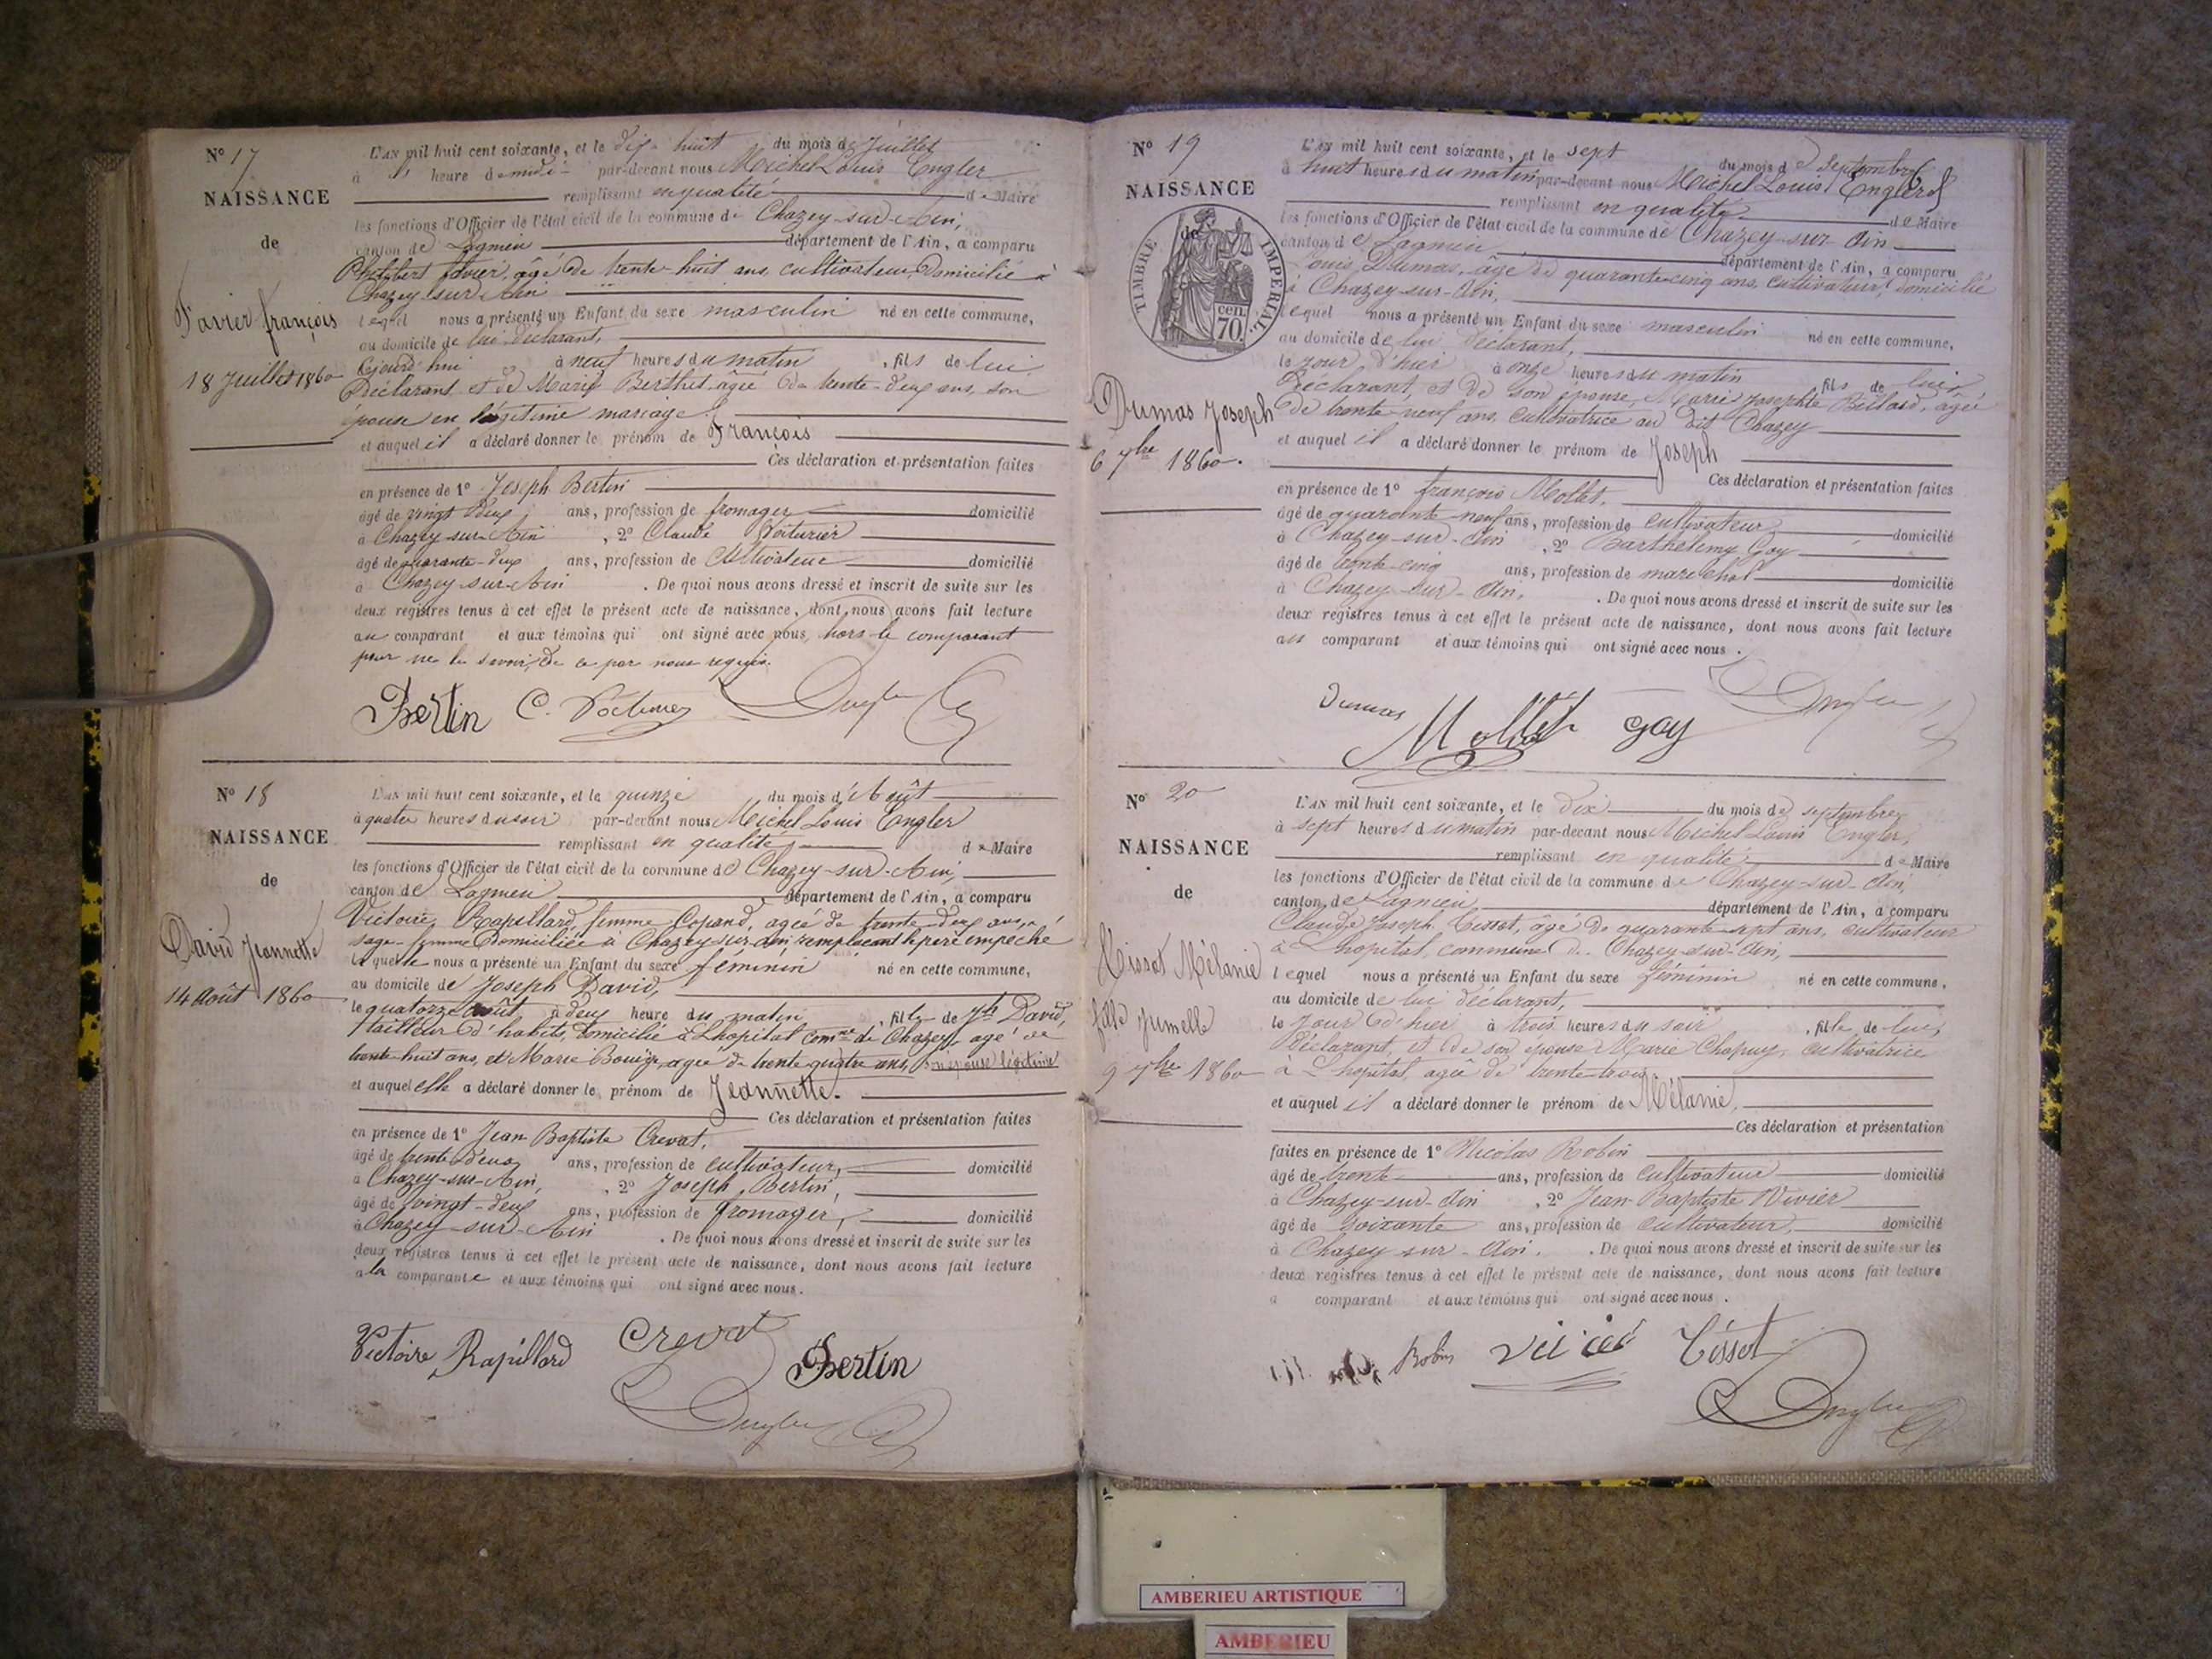 N° 17
NAISSANCE
de
Favier françois
18 Juillet 1860
L'AN mil huit cent soixante, et le dix-huit du mois de Juillet
à heure de midi par-devant nous Michel Louis Engler
remplissant en qualité de Maire
les fonctions d'Officier de l'état civil de la commune de Chazey-sur-Ain,
canton de Lagnieu département de l'Ain, a comparu
Philibert favier, âgé de trente-huit ans, cultivateur, domicilié à
Chazey-sur-Ain
lequel nous a présenté un Enfant du sexe masculin né en cette commune,
au domicile de lui déclarant,
à neuf heures du matin, fils de lui
Déclarant et de Marie Berthet âgée de trente-deux ans, son
épouse en légitime mariage
et auquel il a déclaré donner le prénom de François
Ces déclaration et présentation faites
en présence de 1° Joseph Bertin
âgé de vingt deux ans, profession de fromager domicilié
à Chazey-sur-Ain, 2° Claude Voiturier
âgé de quarante-deux ans, profession de cultivateur domicilié
à Chazey-sur-Ain. De quoi nous avons dressé et inscrit de suite sur les
deux registres tenus à cet effet le présent acte de naissance, dont nous avons fait lecture
au comparant et aux témoins qui ont signé avec nous, hors le comparant
pour ne le savoir, de ce par nous requis.
Bertin C. Voiturier Engler
N° 18
NAISSANCE
de
David Jeannette
14 Août 1860
L'AN mil huit cent soixante, et le quinze du mois d'Août
à quatre heures du soir par-devant nous Michel Louis Engler
remplissant en qualité de Maire
les fonctions d'Officier de l'état civil de la commune de Chazey-sur-Ain,
canton de Lagnieu département de l'Ain, a comparu
Victoire Rapillard, femme agée de trente-deux ans,
sage-femme domiciliée à Chazey sur ain, remplacant le père empeché
laquelle nous a présenté un Enfant du sexe féminin né en cette commune,
au domicile de Joseph David,
le quatorze août à deux heure du matin, fille de Jph David,
tailleur d'habits, domicilié à Lhopital comne de Chazey, agé de
trente-huit ans, et Marie agée de trente-quatre ans, son épouse légitime
et auquel elle a déclaré donner le prénom de Jeannette.
Ces déclaration et présentation faites
en présence de 1° Jean Baptiste Crevat,
âgé de trente deux ans, profession de cultivateur, domicilié
à Chazey-sur-Ain, 2° Joseph Bertin,
âgé de vingt-deux ans, profession de fromager, domicilié
à Chazey-sur-Ain. De quoi nous avons dressé et inscrit de suite sur les
deux registres tenus à cet effet le présent acte de naissance, dont nous avons fait lecture
a la comparante et aux témoins qui ont signé avec nous.
Victoire Rapillard Crevat Bertin
Engler
N° 19
NAISSANCE
de
TIMBRE IMPERIAL
70 cen.
Dumas Joseph
6 7bre 1860.
L'AN mil huit cent soixante, et le sept du mois de Septembre
à huit heures du matin par-devant nous Michel Louis Engler
remplissant en qualité de Maire
les fonctions d'Officier de l'état civil de la commune de Chazey-sur-Ain
canton de Lagnieu département de l'Ain, a comparu
Louis Dumas, âgé de quarante-cinq ans, cultivateur, domicilié
à Chazey-sur-Ain,
lequel nous a présenté un Enfant du sexe masculin né en cette commune,
au domicile de lui déclarant,
le jour d'hier à onze heures du matin fils de lui
Déclarant, et de son épouse, Marie Josephte Billard, âgée
de trente-neuf ans, cultivatrice au dit Chazey
et auquel il a déclaré donner le prénom de Joseph
Ces déclaration et présentation faites
en présence de 1° françois Mollet,
âgé de quarante-neuf ans, profession de cultivateur domicilié
à Chazey-sur-Ain, 2° Barthélemy Goy
âgé de trente-cinq ans, profession de maréchal domicilié
à Chazey-sur-Ain. De quoi nous avons dressé et inscrit de suite sur les
deux registres tenus à cet effet le présent acte de naissance, dont nous avons fait lecture
au comparant et aux témoins qui ont signé avec nous.
Dumas Mollet Goy Engler
N° 20
NAISSANCE
de
Tissot Mélanie
fille jumelle
9 7bre 1860
L'AN mil huit cent soixante, et le dix du mois de septembre
à sept heures du matin par-devant nous Michel Louis Engler,
remplissant en qualité de Maire
les fonctions d'Officier de l'état civil de la commune de Chazey-sur-Ain,
canton de Lagnieu, département de l'Ain, a comparu
Claude Joseph Tissot, âgé de quarante-sept ans, cultivateur
à Lhopital, commune de Chazey-sur-Ain,
lequel nous a présenté un Enfant du sexe féminin né en cette commune,
au domicile de lui déclarant,
le jour d'hier à trois heures du soir, fille de lui,
Déclarant, et de son épouse Marie Chapuy, cultivatrice
à Lhopital, agée de trente-trois.
et auquel il a déclaré donner le prénom de Mélanie,
Ces déclaration et présentation
faites en présence de 1° Nicolas Robin
âgé de trente ans, profession de cultivateur domicilié
à Chazey-sur-Ain, 2° Jean-Baptiste Vivier
âgé de soixante ans, profession de cultivateur, domicilié
à Chazey sur-Ain. De quoi nous avons dressé et inscrit de suite sur les
deux registres tenus à cet effet le présent acte de naissance, dont nous avons fait lecture
a comparant et aux témoins qui ont signé avec nous.
Robin Tissot
Engler
AMBERIEU ARTISTIQUE
AMBERIEU